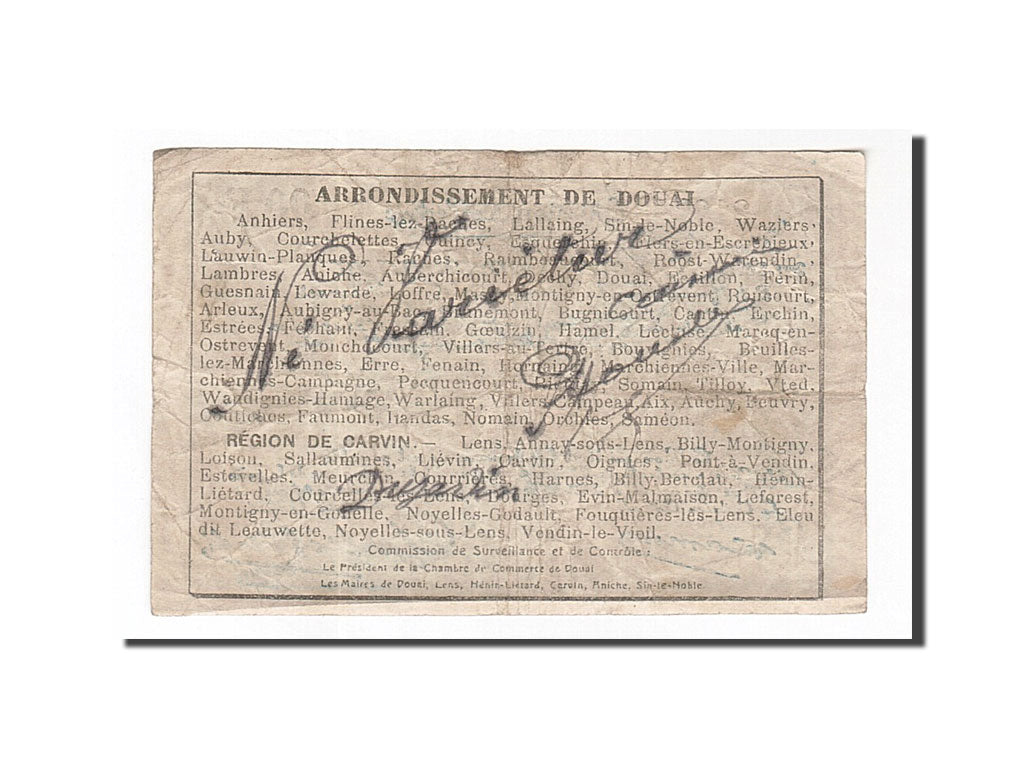 ARRONDISSEMENT DE DOUAI
Anhiers, Flines-lez-Raches, Lallaing, Sin-le-Noble, Waziers
Auby, Courchelettes, Quincy, Esquerchin, Villers-en-Escrebieux,
Lauwin-Planques, Raches, Raimbeaucourt, Roost-Warendin,
Lambres, Aniche, Auberchicourt, Dechy, Douai, Ecaillon, Férin,
Guesnain, Lewarde, Loffre, Masny, Montigny-en-Ostrevent, Roucourt,
Arleux, Aubigny-au-Bac, Brunemont, Bugnicourt, Cantin, Erchin,
Estrées, Féchain, Fressain, Gœulzin, Hamel, Lécluse, Marcq-en-
Ostrevent, Monchecourt, Villers-au-Tertre, Bouvignies, Bruilles-
lez-Marchiennes, Erre, Fenain, Hornaing, Marchiennes-Ville, Mar-
chiennes-Campagne, Pecquencourt, Somain, Tilloy, Vred,
Wandignies-Hamage, Warlaing, Villers-Campeau, Aix, Auchy, Beuvry,
Coutiches, Faumont, Landas, Nomain, Orchies, Saméon.
RÉGION DE CARVIN. — Lens, Annay-sous-Lens, Billy-Montigny,
Loison, Sallaumines, Liévin, Carvin, Oignies, Pont-à-Vendin,
Estevelles, Meurchin, Courrières, Harnes, Billy-Berclau, Hénin-
Liétard, Courcelles-les-Lens, Dourges, Evin-Malmaison, Leforest,
Montigny-en-Gohelle, Noyelles-Godault, Fouquières-lès-Lens, Eleu
dit Leauwette, Noyelles-sous-Lens, Vendin-le-Vieil.
Commission de Surveillance et de Contrôle :
Le Président de la Chambre de Commerce de Douai
Les Maires de Douai, Lens, Hénin-Liétard, Carvin, Aniche, Sin-le-Noble.